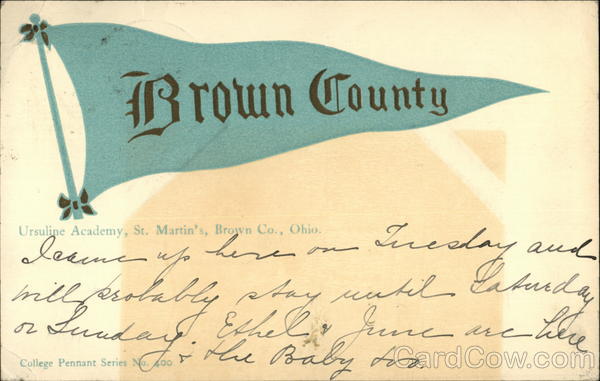 Brown County
Ursuline Academy, St. Martin's, Brown Co., Ohio.
I came up here on Tuesday and
will probably stay until Saturday
or Sunday. Ethel & June are here
& the Baby too.
College Pennant Series No. 400
CardCow.com